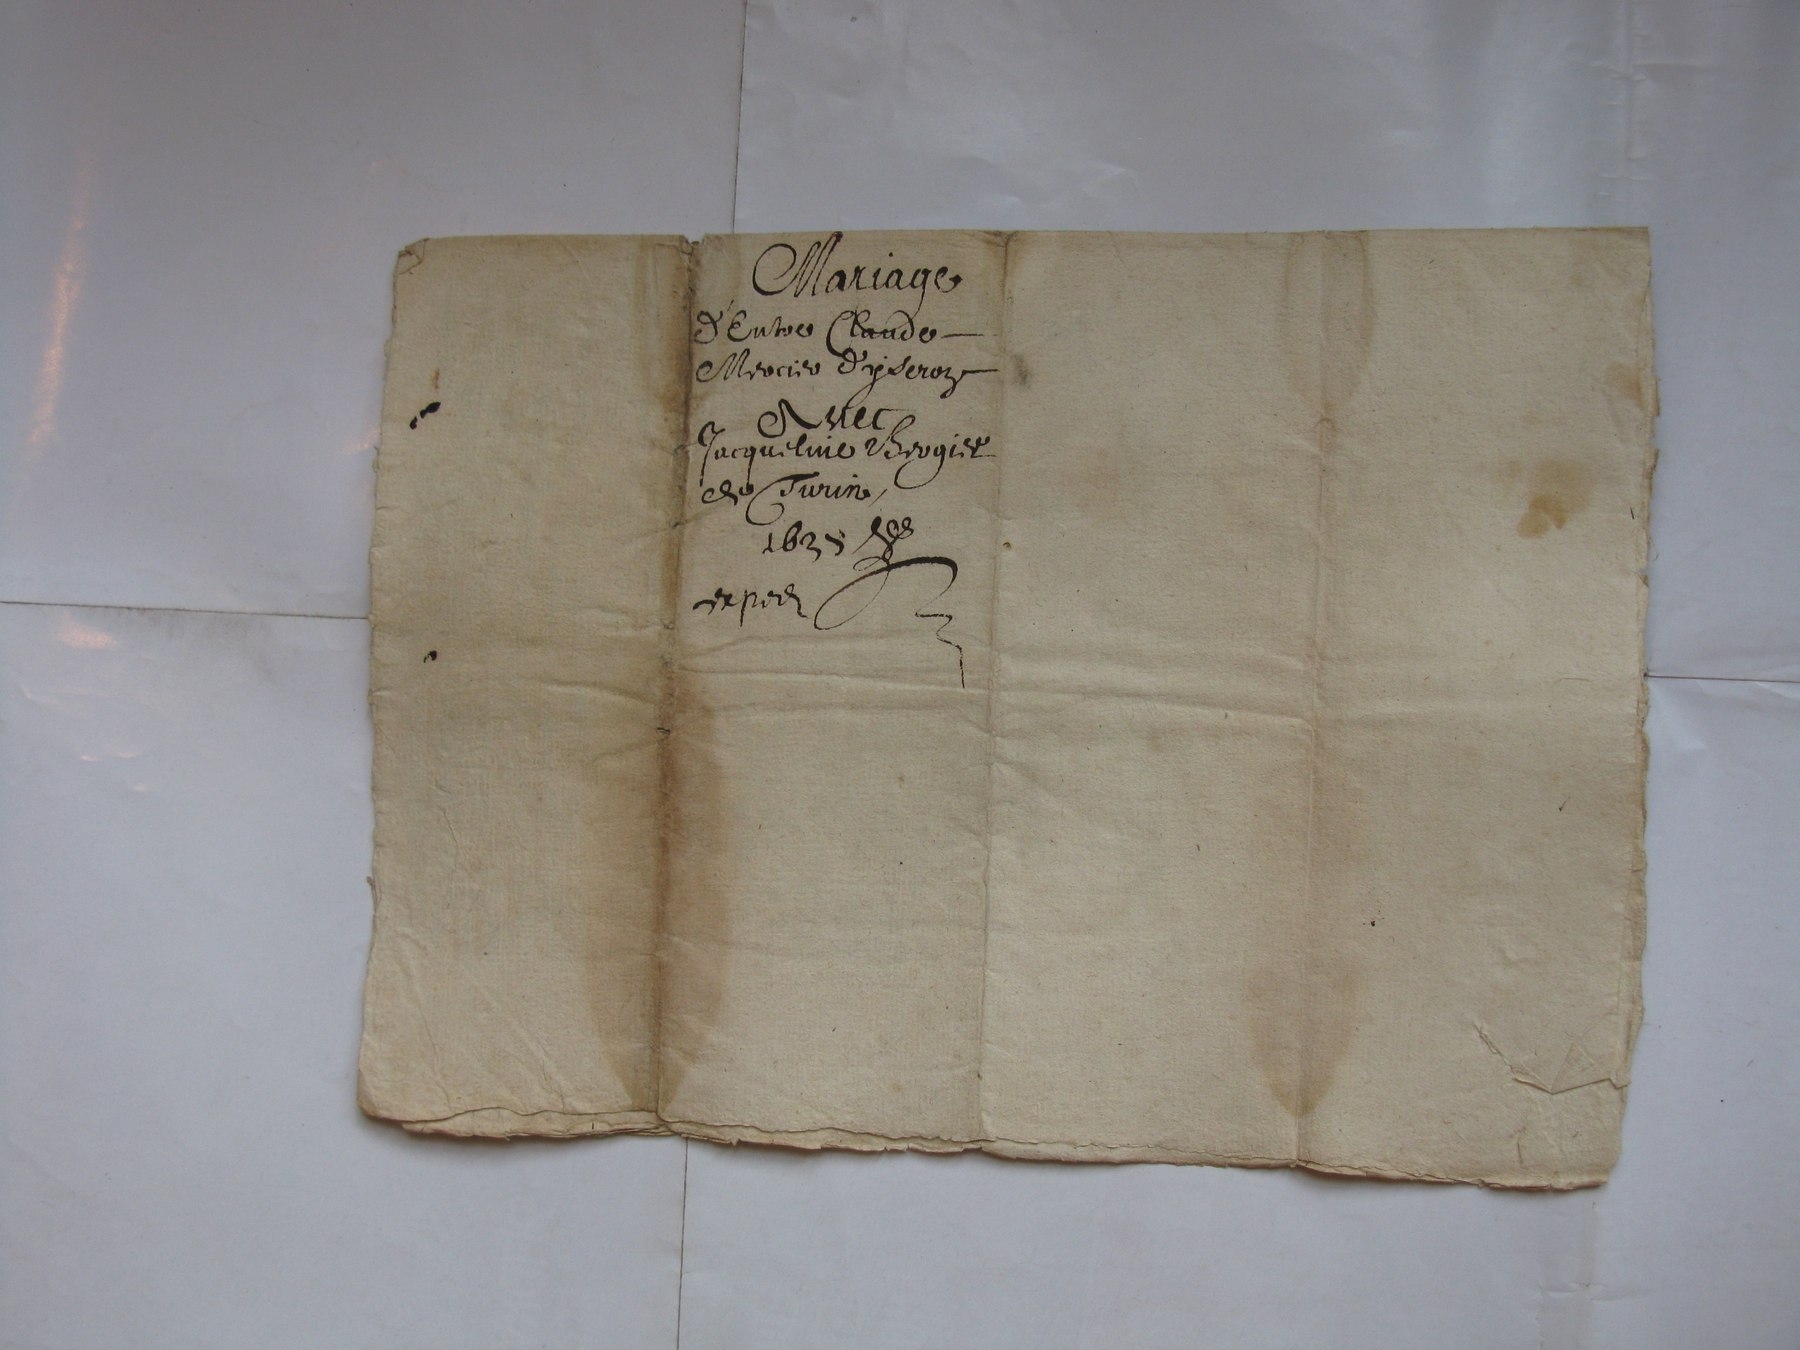 Mariage
d'Entre Claude
Mercier d'yseron
Avec
Jacqueline Bergier
de Turin,
1635
exped